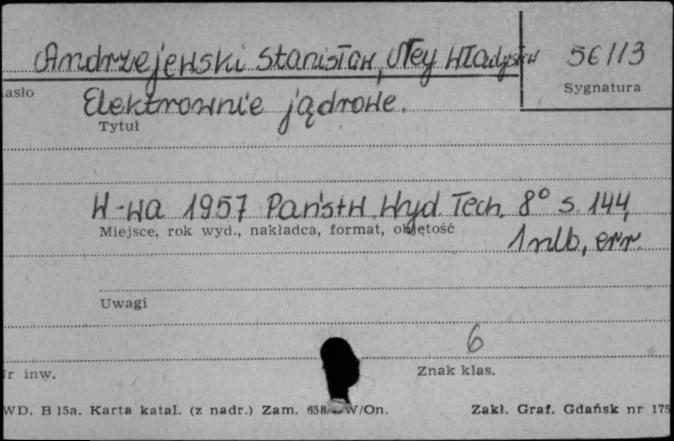 Andrzejewski Stanisław, Uley Władysław 56113
asło Sygnatura
Elektrownie jądrowe.
Tytuł
W-wa 1957 Państw. Wyd. Tech. 8° s. 144,
Miejsce, rok wyd., nakładca, format, objętość
1 nlb, err.
Uwagi
6
r inw. Znak klas.
WD. B 15a. Karta katal. (z nadr.) Zam. 658 W/On. Zakł. Graf. Gdańsk nr 175